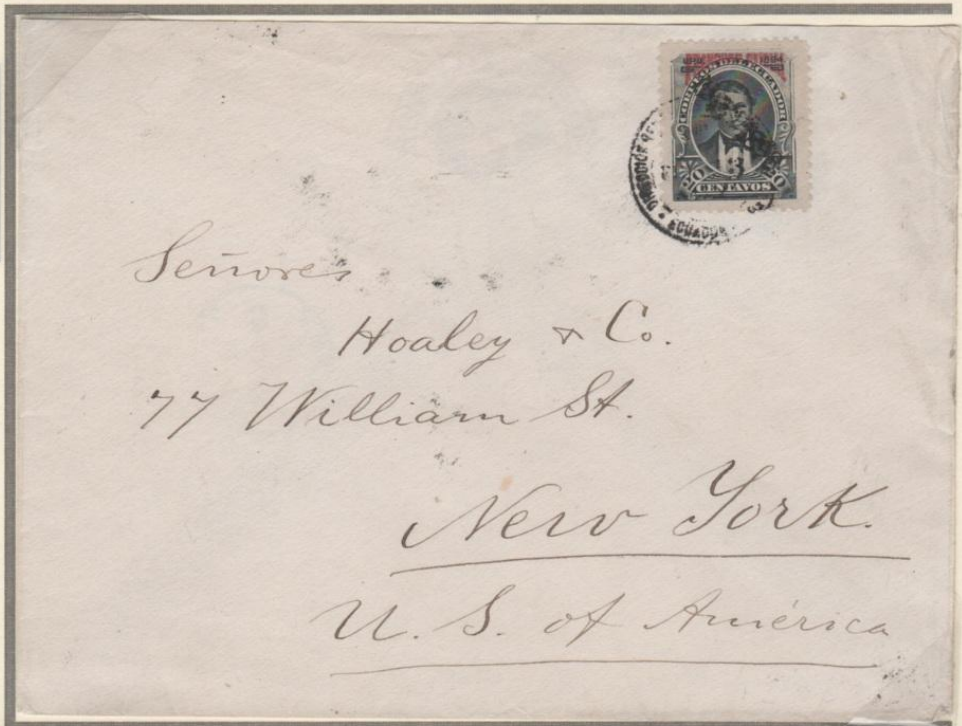 1894 1894
CORREOS DEL ECUADOR
20 20
CENTAVOS
DIRECCION
ECUADOR
Señores
Hoaley & Co.
77 William St.
New York.
U. S. of América